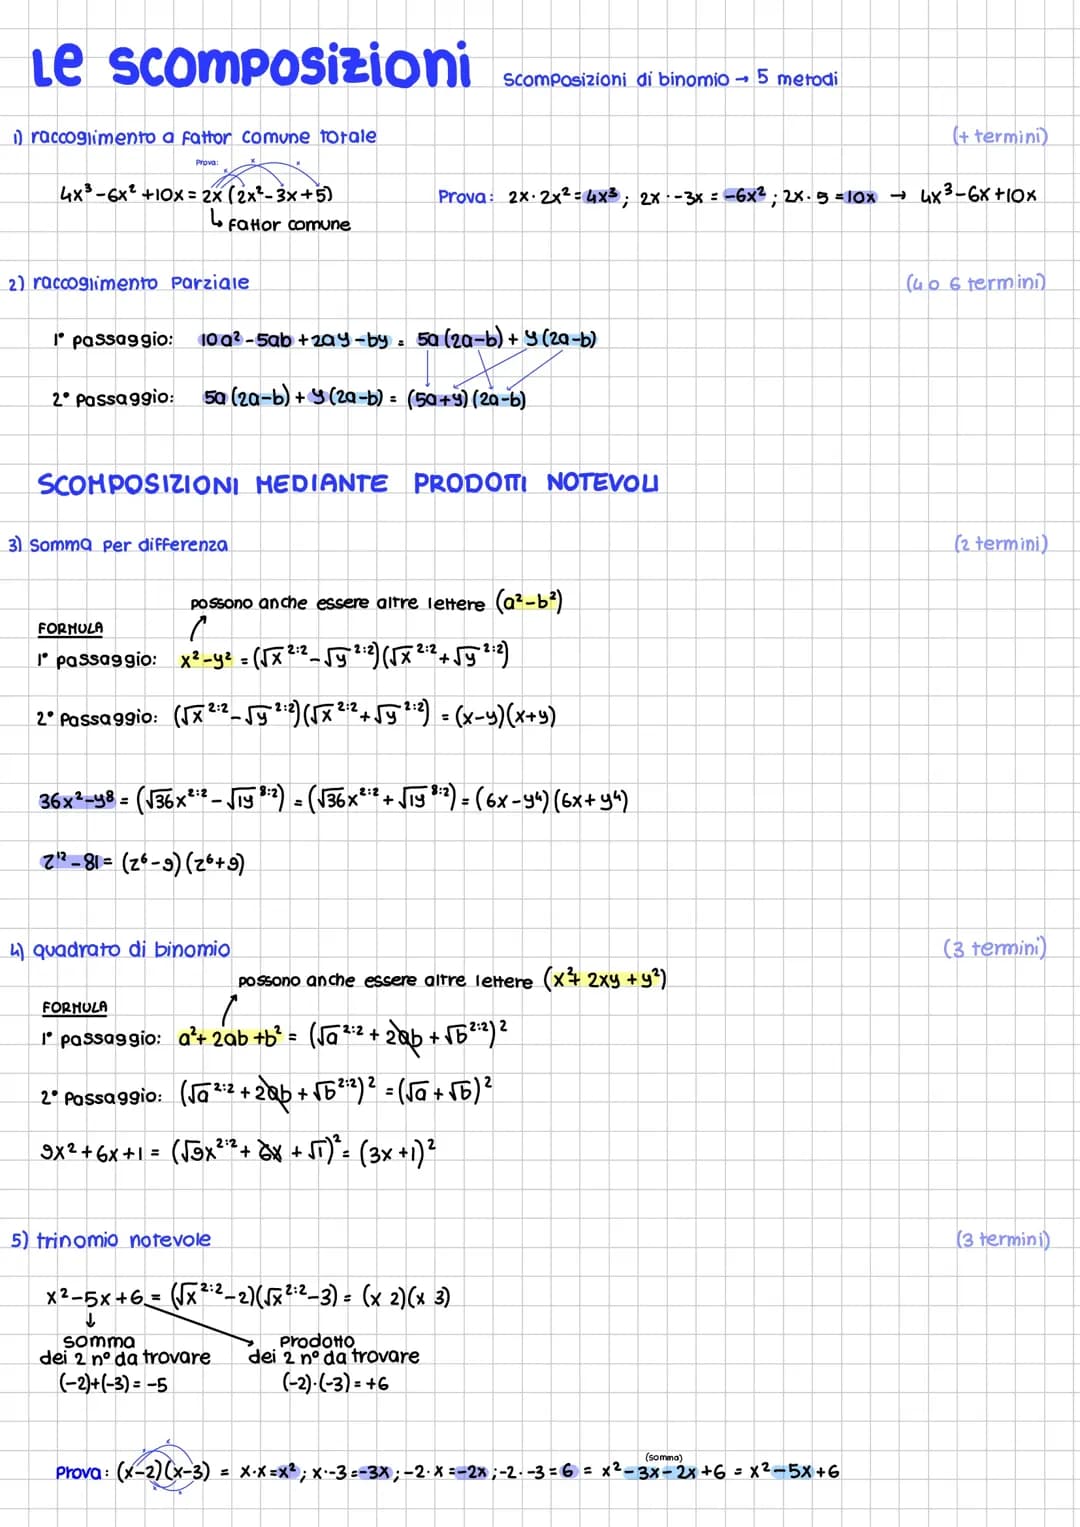 Le scomposizioni Scomposizioni di binomio → 5 metodi
1) raccoglimento a fattor comune totale (+ termini)
Prova: x x x
4x³-6x²+10x = 2x(2x²-3x+5) Prova: 2x·2x²=4x³; 2x·-3x=-6x²; 2x·5=10x → 4x³-6x+10x
↳ fattor comune
2) raccoglimento Parziale (4 o 6 termini)
1° passaggio: 10a²-5ab+2ay-by = 5a(2a-b)+y(2a-b)
2° Passaggio: 5a(2a-b)+y(2a-b) = (5a+y)(2a-b)
SCOMPOSIZIONI MEDIANTE PRODOTTI NOTEVOLI
3) Somma per differenza (2 termini)
possono anche essere altre lettere (a²-b²)
FORMULA
1° passaggio: x²-y² = (√x^2:2-√y^2:2)(√x^2:2+√y^2:2)
2° Passaggio: (√x^2:2-√y^2:2)(√x^2:2+√y^2:2) = (x-y)(x+y)
36x²-y⁸ = (√36x^2:2-√1y^8:2) = (√36x^2:2+√1y^8:2) = (6x-y⁴)(6x+y⁴)
z¹²-81 = (z⁶-9)(z⁶+9)
4) quadrato di binomio (3 termini)
possono anche essere altre lettere (x²+2xy+y²)
FORMULA
1° passaggio: a²+2ab+b² = (√a^2:2+2ab+√b^2:2)²
2° Passaggio: (√a^2:2+2ab+√b^2:2)² = (√a+√b)²
9x²+6x+1 = (√9x^2:2+6x+√1)² = (3x+1)²
5) trinomio notevole (3 termini)
x²-5x+6 = (√x^2:2-2)(√x^2:2-3) = (x 2)(x 3)
↓
somma Prodotto
dei 2 n° da trovare dei 2 n° da trovare
(-2)+(-3)=-5 (-2)·(-3)=+6
(somma)
Prova: (x-2)(x-3) = x·x=x²; x·-3=-3x; -2·x=-2x; -2·-3=6 = x²-3x-2x+6 = x²-5x+6